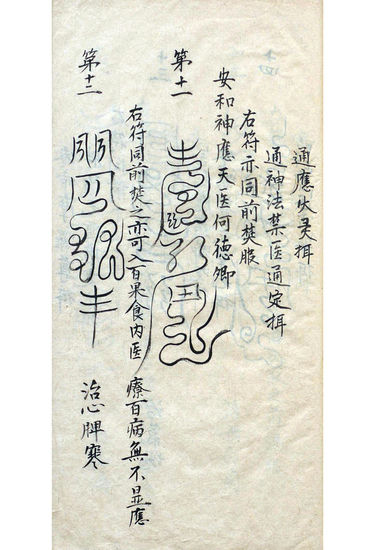 通應火灵揖
通神法禁医通定揖
右符亦同前焚服
安和神應天医何德卿
第十一
右符同前焚之亦可入百果食内医療百病無不显應
第十二
治心脾寒